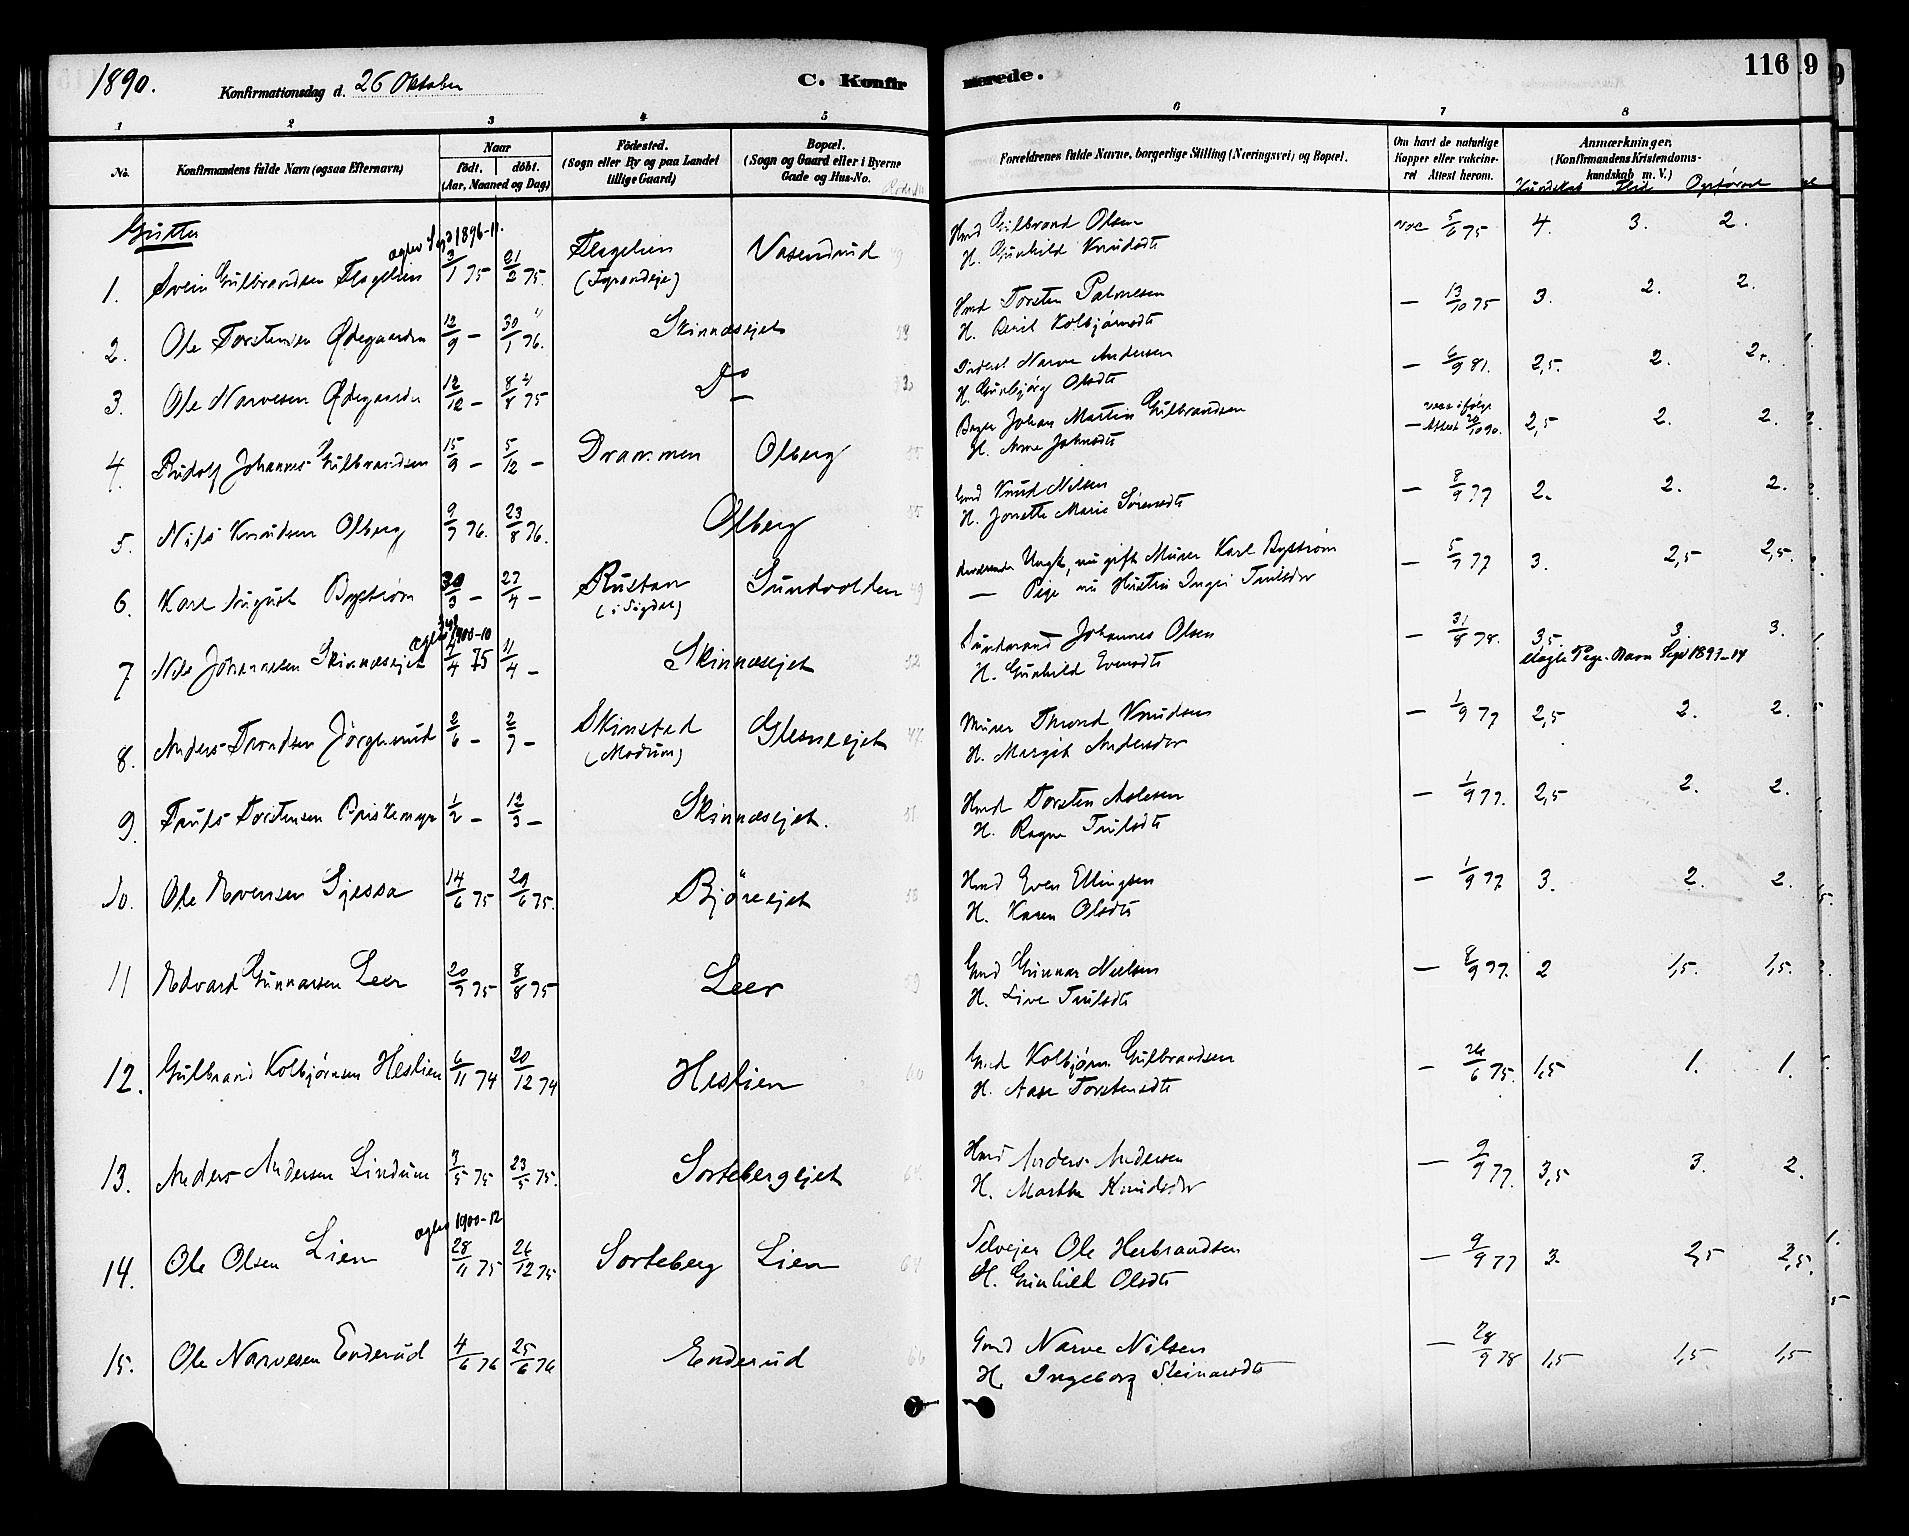 1890.
Konfirmationsdag d. 26 Oktober
C. Konfirmerede.
116
9
1 2 3 4 5 6 7 8
No.
Konfirmandens fulde Navn (ogsaa Efternavn)
Naar
födt. döbt.
(Aar, Maaned og Dag)
Födested.
(Sogn eller By og paa Landet
tillige Gaard)
Bopæl.
(Sogn og Gaard eller i Byerne
Gade og Hus-No.
Forældrenes fulde Navne, borgerlige Stilling (Næringsvei) og Bopæl.
Om havt de naturlige
Kopper eller vakcine-
ret Attest herom.
Anmærkninger.
(Konfirmandens Kristendoms-
kundskab m. V.)
Kundskab Flid Opförsel
Gutter
1. Svein Gulbrandsen Flagelien 3/1 75 21/2 75. Flagelien Vasendrud Hmd Gulbrand Olsen vac 5/6 75 4. 3. 2.
H. Gunhild Knudsdt
2. Ole Torstensen Ødegaarden 12/9 - 30/1 76. Skinnæsejet Hmd Torsten Palmesen - 13/10 75 3. 2. 2.
H. Kolbjørnsdt
3. Ole Narvesen Ødegaarden 12/12 - 8/8 75 Do Narve Andersen - 6/9 81. 2,5. 2. 2.
H. Gunbjørg Olsdt
4. Rudolf Johannes Gulbrandsen 15/9 - 5/12 - Drammen Olberg Bager Johan Martin Gulbrandsen vacc ifølge
- Attest 20/10 90. 2,5 2. 2.
H. Anne Jahnsdt
5. Nils Knudsen Olberg 9/7 76. 23/8 76. Olberg Gmd Knud Nilsen - 8/9 77 2. 2. 2.
H. Jonette Marie Sørensdt
6. Karl August Bystrøm 30/3 - 27/4 - Rustan Sundvolden Ungk, nu gift Murer Karl Bystrøm - 5/7 77 3. 2,5 2,5.
(i Sigdal)
— Pige nu Hustru Ingri Trulsdr
7 Nils Johannesen Skinnæsejet 4/4 75 11/4 - Skinnæsejet Johannes Olsen - 31/8 78. 3,5 3. 3.
H. Gunhild Evensdt
8. Anders Trondsen Jörgherud 2/6 - 2/7 - Skinstad Glesneejet Murer Thrond Knudsen - 1/9 77 2,5 2. 2.
(Modum)
H. Margit Andersdr
9. Truls Torstensen Briskemyr 1/2 - 12/3 - Skinnæsejet. Hmd Torsten Aslesen - 1/9 77. 2,5 2. 2.
H. Ragne Trulsdt
10. Ole Evensen Gjessa 14/6 75 29/6 75. Björeejet Hmd Even Ellingsen - 1/9 77. 3. 2. 2.
H. Karen Olsdt
11 Edvard Gunnarsen Leer 20/7 75 8/8 75 Leer Gmd Gunnar Nielsen - 8/9 77. 2 1,5. 1,5.
H. Live Trulsdt
12. Gulbrand Kolbjørnsen Heslien 6/11 74 20/12 74 Heslien Gmd Kolbjørn Gulbrandsen - 26/6 75. 1,5 1. 1.
H. Aase Torstensdt
13. Anders Andersen Lindum 3/5 75 23/5 75. Sortebergejet Hmd Anders Andersen - 9/9 77. 3,5 3. 2.
H. Marthe Knudsdr
14. Ole Olsen Lien 28/11 75 26/12 75 Sorteberg Lien Selvejer Ole Herbrandsen - 9/9 77 3. 2,5 2,5.
H. Gunhild Olsdt
15. Ole Narvesen Enderud 4/6 76 25/6 76 Enderud Gmd Narve Nilsen - 28/9 78 1,5 1,5 1,5
H. Ingeborg Steinarsdt